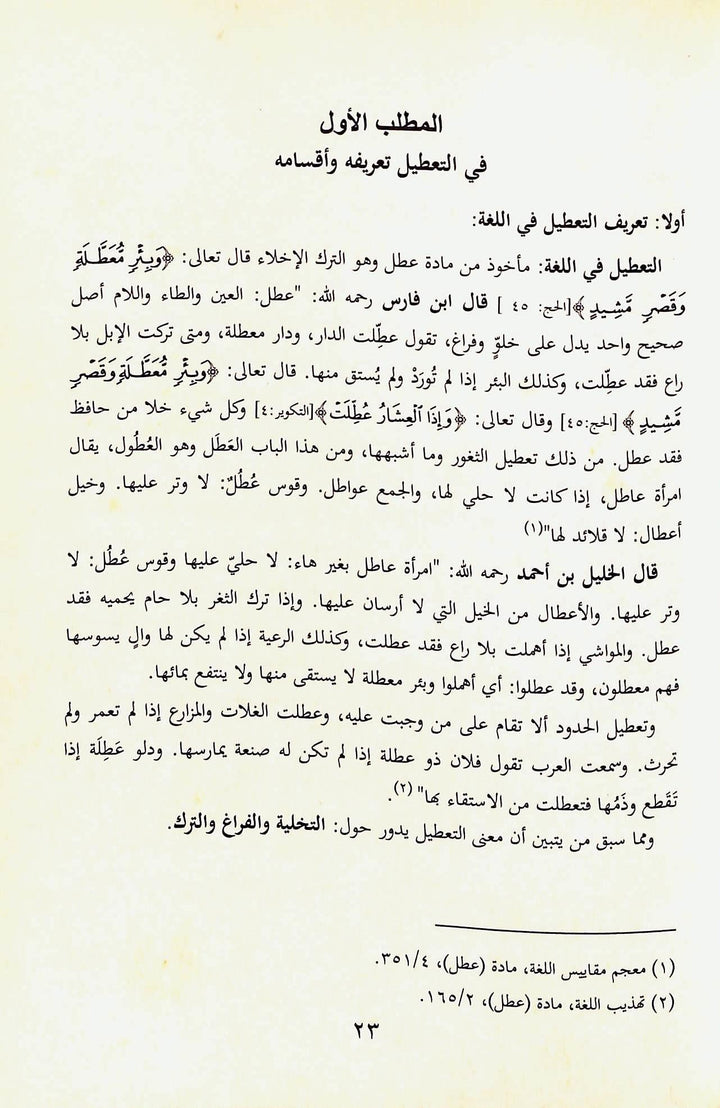 المطلب الأول
في التعطيل تعريفه وأقسامه
أولا: تعريف التعطيل في اللغة:
التعطيل في اللغة: مأخوذ من مادة عطل وهو الترك الإخلاء قال تعالى: ﴿وَبِئْرٍ مُّعَطَّلَةٍ
وَقَصْرٍ مَّشِيدٍ﴾[الحج: ٤٥ ] قال ابن فارس رحمه الله: "عطل: العين والطاء واللام أصل
صحيح واحد يدل على خلوٍّ وفراغ، تقول عطِّلت الدار، ودار معطلة، ومتى تركت الإبل بلا
راع فقد عطِّلت، وكذلك البئر إذا لم تُورَدْ ولم يُستق منها. قال تعالى: ﴿وَبِئْرٍ مُّعَطَّلَةٍ وَقَصْرٍ
مَّشِيدٍ﴾ [الحج:٤٥] وقال تعالى: ﴿وَإِذَا الْعِشَارُ عُطِّلَتْ﴾[التكوير:٤] وكل شيء خلا من حافظ
فقد عطل. من ذلك تعطيل الثغور وما أشبهها، ومن هذا الباب العَطَل وهو العُطُول، يقال
امرأة عاطل، إذا كانت لا حلي لها، والجمع عواطل. وقوس عُطُلٌ: لا وتر عليها. وخيل
أعطال: لا قلائد لها"(١)
قال الخليل بن أحمد رحمه الله: "امرأة عاطل بغير هاء: لا حليّ عليها وقوس عُطُل: لا
وتر عليها. والأعطال من الخيل التي لا أرسان عليها. وإذا ترك الثغر بلا حام يحميه فقد
عطل. والمواشي إذا أهملت بلا راع فقد عطلت، وكذلك الرعية إذا لم يكن لها والٍ يسوسها
فهم معطلون، وقد عطلوا: أي أهملوا وبئر معطلة لا يستقى منها ولا ينتفع بمائها.
وتعطيل الحدود ألا تقام على من وجبت عليه، وعطلت الغلات والمزارع إذا لم تعمر ولم
تحرث. وسمعت العرب تقول فلان ذو عطلة إذا لم تكن له صنعة يمارسها. ودلو عَطِلَة إذا
تَقَطع وذَمُها فتعطلت من الاستقاء بها" (٢).
ومما سبق من يتبين أن معنى التعطيل يدور حول: التخلية والفراغ والترك.
(١) معجم مقاييس اللغة، مادة (عطل)، ٣٥١/٤.
(٢) تهذيب اللغة، مادة (عطل)، ١٦٥/٢.
٢٣